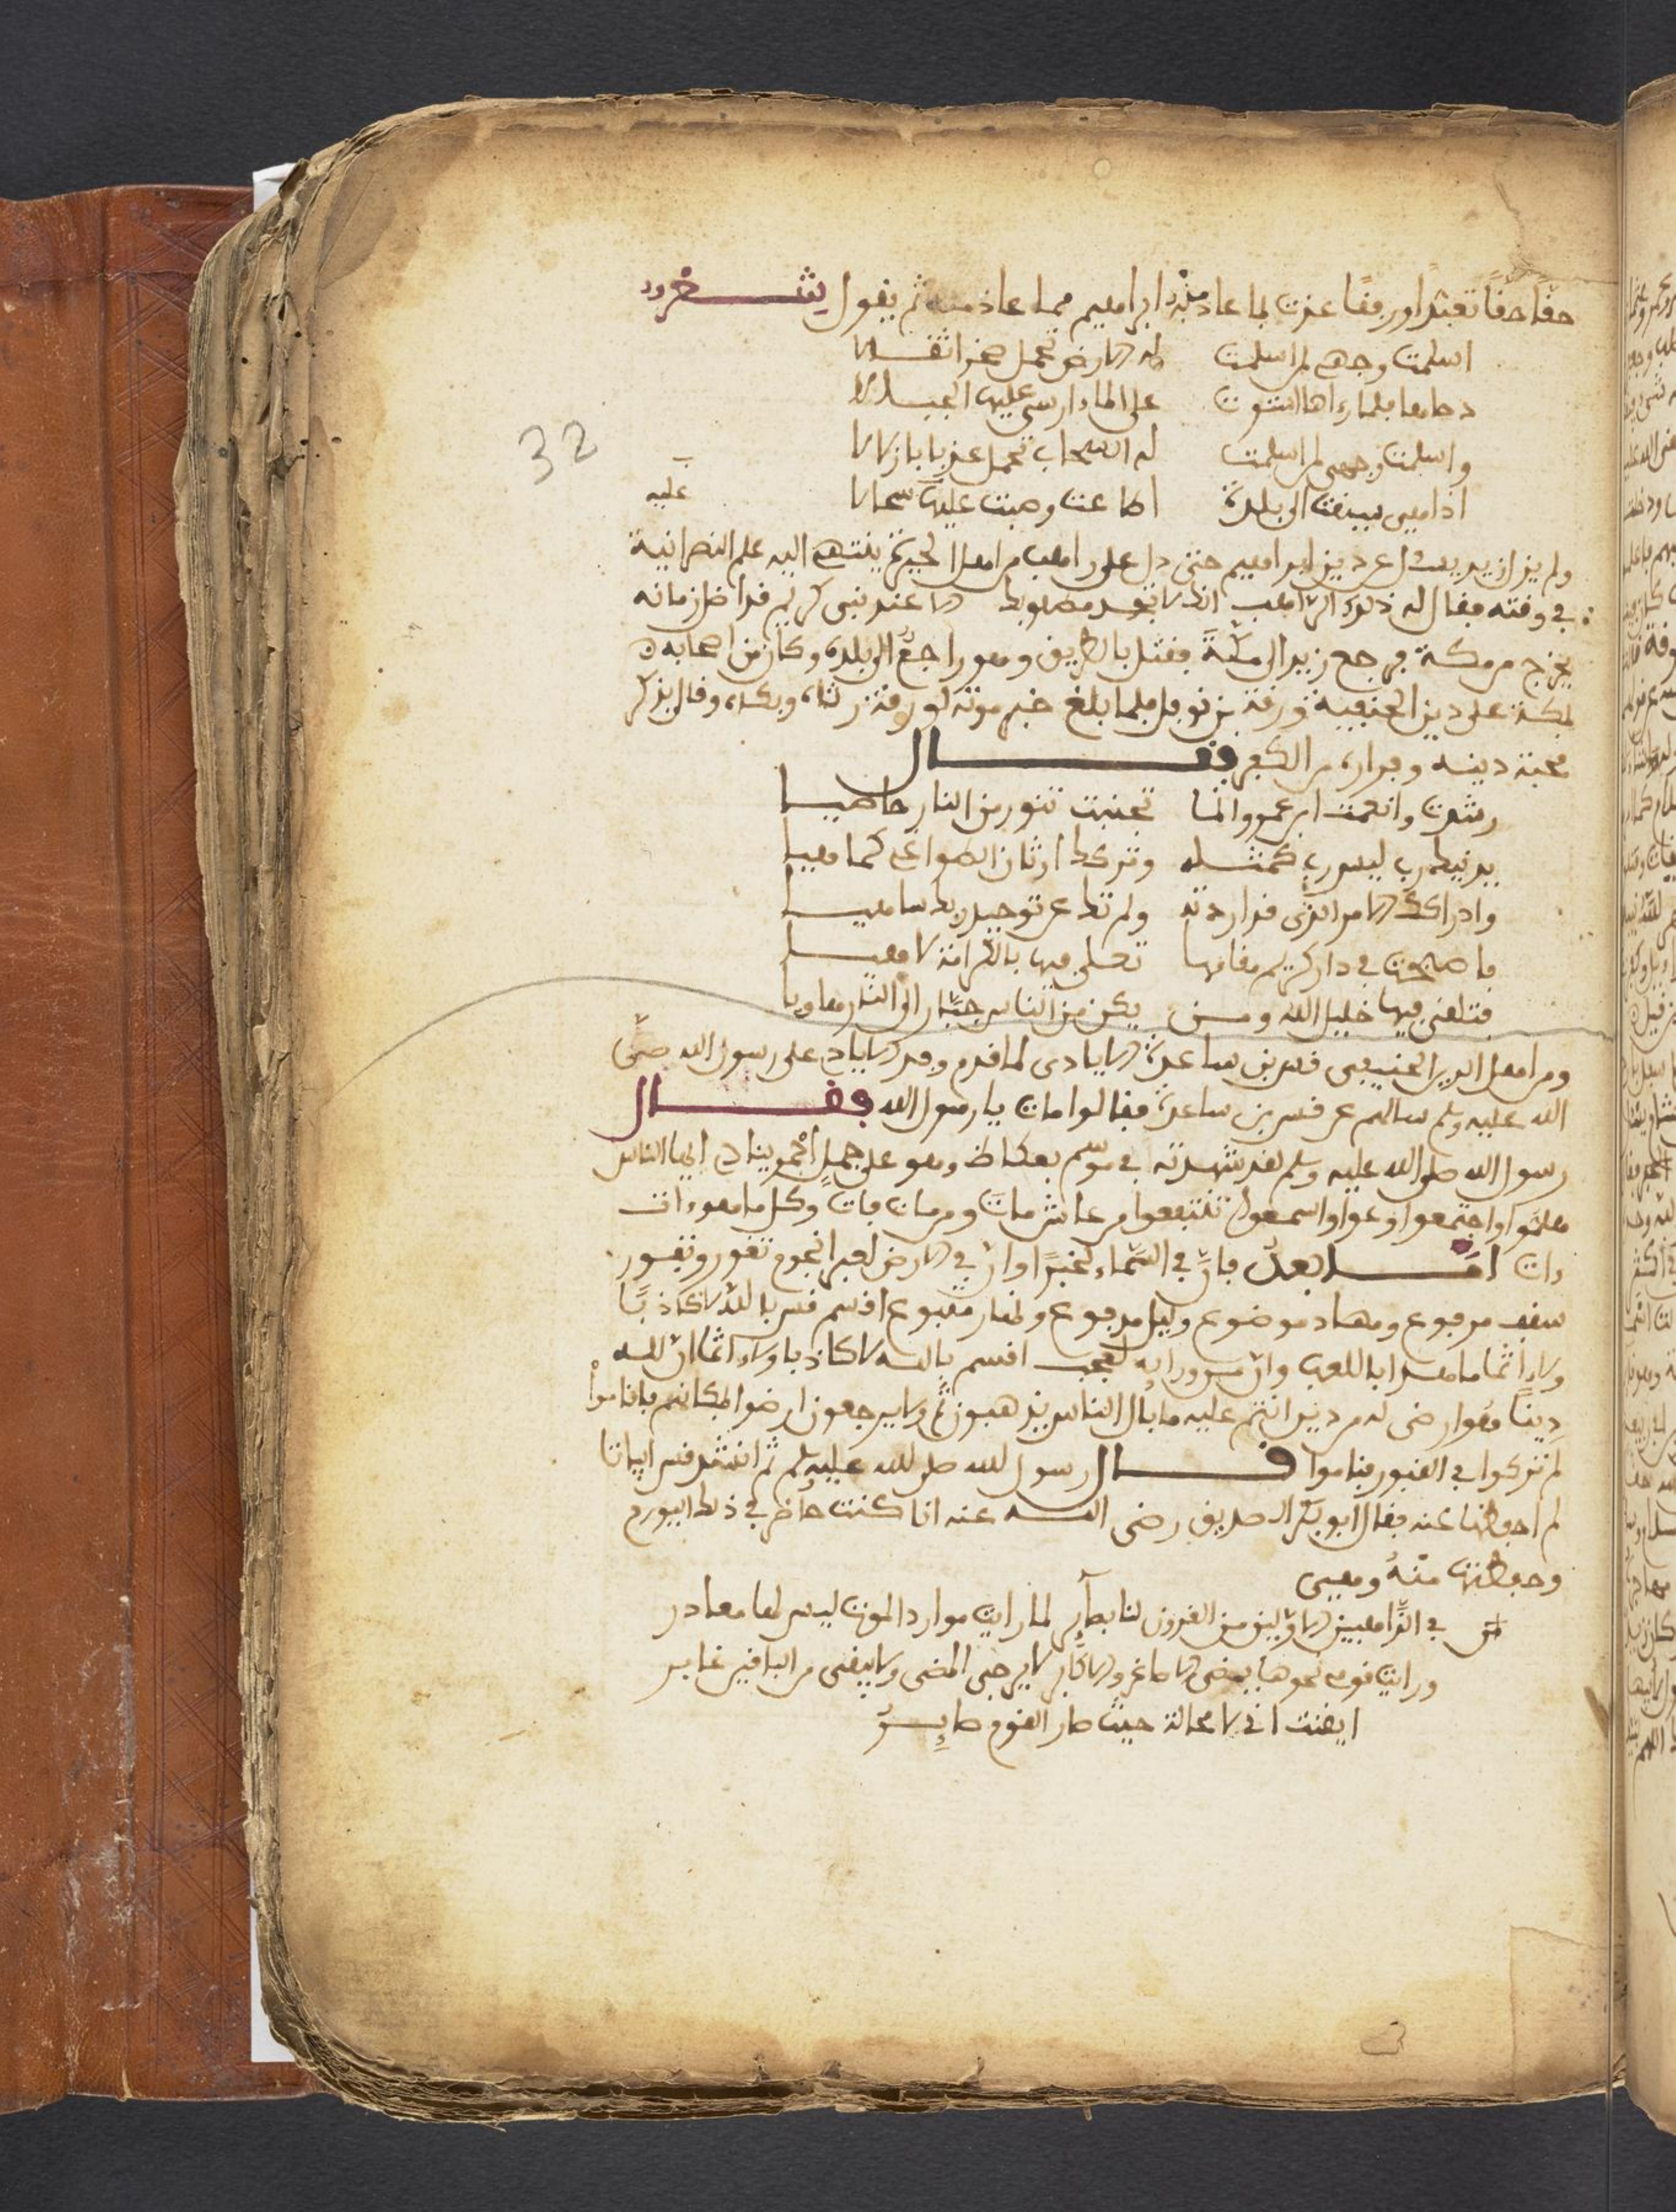 حقًا حقًا تعبدًا ورقًا عذت بما عاذ به ابراهيم مما عاذ منه ثم يقول شعر
اسلمت وجهي لمن اسلمت له الارض تحمل صخرا ثقالا
دحاها فلما رءاها استوت على الماء ارسى عليها الجبالا
32
واسلمت وجهي لمن اسلمت له السحاب تحمل عذبا زلالا
اذا هي سيقت الى بلدة اطاعت وصبت عليها سجالا عليه
ولم يزل زيد يسئل عن دين ابراهيم حتى دل على راهب من اهل الحيرة ينتهي اليه علم النصرانية
في وقته فقال له ذلك الراهب انك لا تجد مطلوبك الا عند نبي كريم قد اظل زمانه
يخرج من مكة فرجع زيد الى مكة فقتل بالطريق وهو راجع الى بلده وكان من اصحابه
بمكة على دين الحنيفية ورقة بن نوفل فلما بلغ خبر موته لورقة رثاه وبكاه وقال يذكر
محبة دينه وفراره من الكفر فقال
رشدت وانعمت ابن عمرو وانما تجنبت تنور من النار حاميا
بدينك رب ليس رب كمثله وتركك اوثان الطواغي كما هيا
وادراكك الامر الذي قد اردته ولم تك عن توحيد ربك ساهيا
فاصبحت في دار كريم مقامها تعلل فيها بالكرامة لاهيا
فتلقى فيها خليل الله ومن يكن من الناس جبارا الى النار هاويا
ومن اهل الدين الحنيفي قس بن ساعدة الايادي لما قدم وفد الاياد على رسول الله صلى
الله عليه وسلم سالهم عن قس بن ساعدة فقالوا مات يا رسول الله فقال
رسول الله صلى الله عليه وسلم لقد شهدته في موسم بعكاظ وهو على جمل احمر ينادي ايها الناس
هلموا واجتمعوا وعوا واسمعوا تنتفعوا من عاش مات ومن مات فات وكل ما هو ءات
ءات اما بعد فان في السماء لخبرًا وان في الارض لعبر انجوم تغور وتفور
سقف مرفوع ومهاد موضوع وليل مرفوع ولنهار متبوع اقسم قس بالله لا كاذبًا
ولا ءاثما ما هذا باللعب وان من ورايه لعجب اقسم بالله لا كاذبا ولا ءاثما ان لله
دينًا هو ارضى له من دين انتم عليه ما بال الناس يذهبون ولا يرجعون ارضوا بمكانهم فاقاموا
ام تركوا في القبور فناموا قال رسول الله صلى الله عليه وسلم ثم انشد قس ابياتا
لم احفظها عنه فقال ابو بكر الصديق رضي الله عنه انا كنت حاضر في ذلك اليوم
وحفظتها منه وهي
في الذاهبين الاولين من القرون لنا بصآئر لما رايت موارد الموت ليس لها مصادر
ورايت قومي نحوها يمضي الاصاغر والاكابر لا يرجى المضى ولا يبقى من الباقين غابر
ايقنت اني لا محالة حيث صار القوم صاير